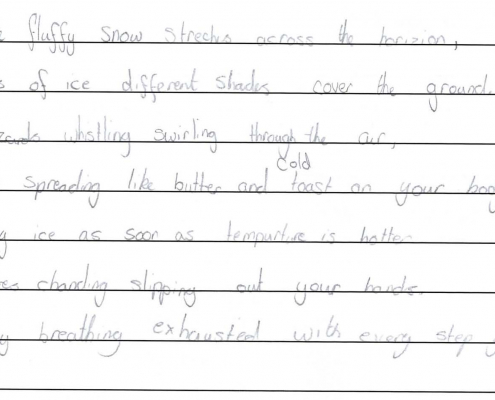 fluffy snow strechs across the horizion,
of ice different shades cover the ground.
whstling swirling through the air,
cold
spreading like butter and toast on your
ice as soon as tempurture is hotter
slipping out your hands.
breathing exhausted with every step